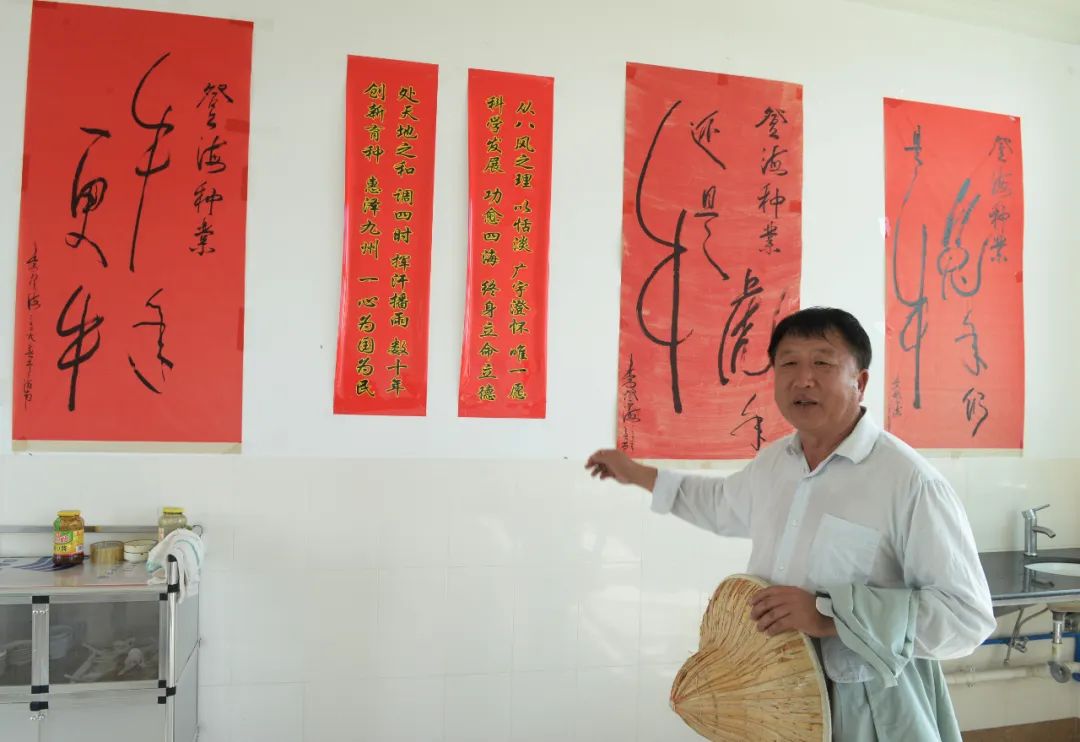 登海种业
牛年
更牛
处天地之和 调四时 挥汗播雨 数十年
创新育种 惠泽九州 一心为国为民
从八风之理 以恬淡 广宇澄怀 唯一愿
科学发展 功愈四海 终身立命立德
登海种业
虎年
还是
牛
李登海
登海种业
兔年仍
是牛